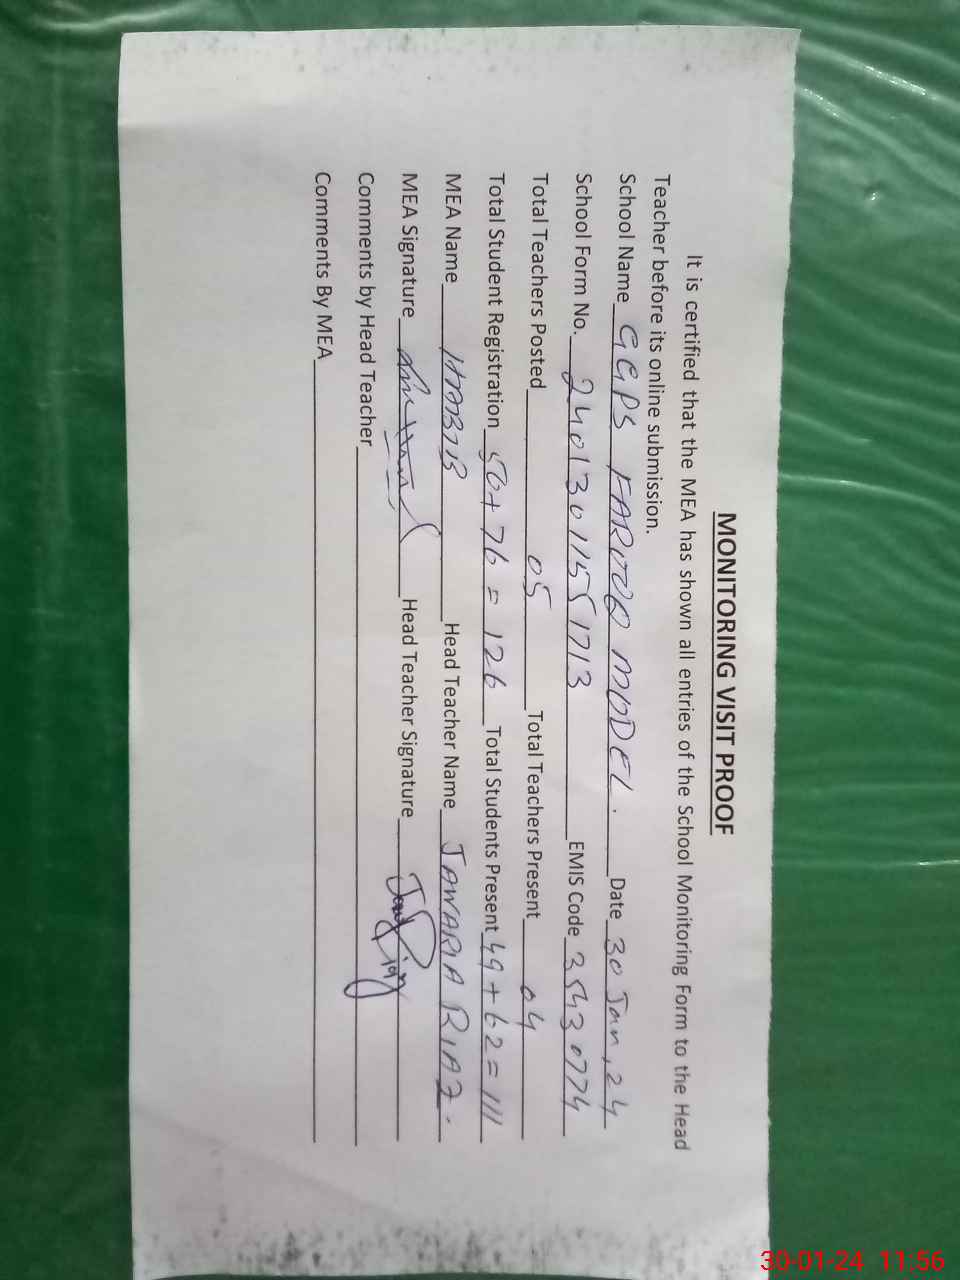 MONITORING VISIT PROOF
It is certified that the MEA has shown all entries of the School Monitoring Form to the Head
Teacher before its online submission.
School Name GGPS FAROOQ MODEL. Date 30 Jan, 24
School Form No. 24013011551713 EMIS Code 35430774
Total Teachers Posted 05 Total Teachers Present 04
Total Student Registration 50+76=126 Total Students Present 49+62=111
MEA Name HABIB Head Teacher Name JAWARIA RIAZ.
MEA Signature Head Teacher Signature
Comments by Head Teacher
Comments By MEA
30-01-24 11:56